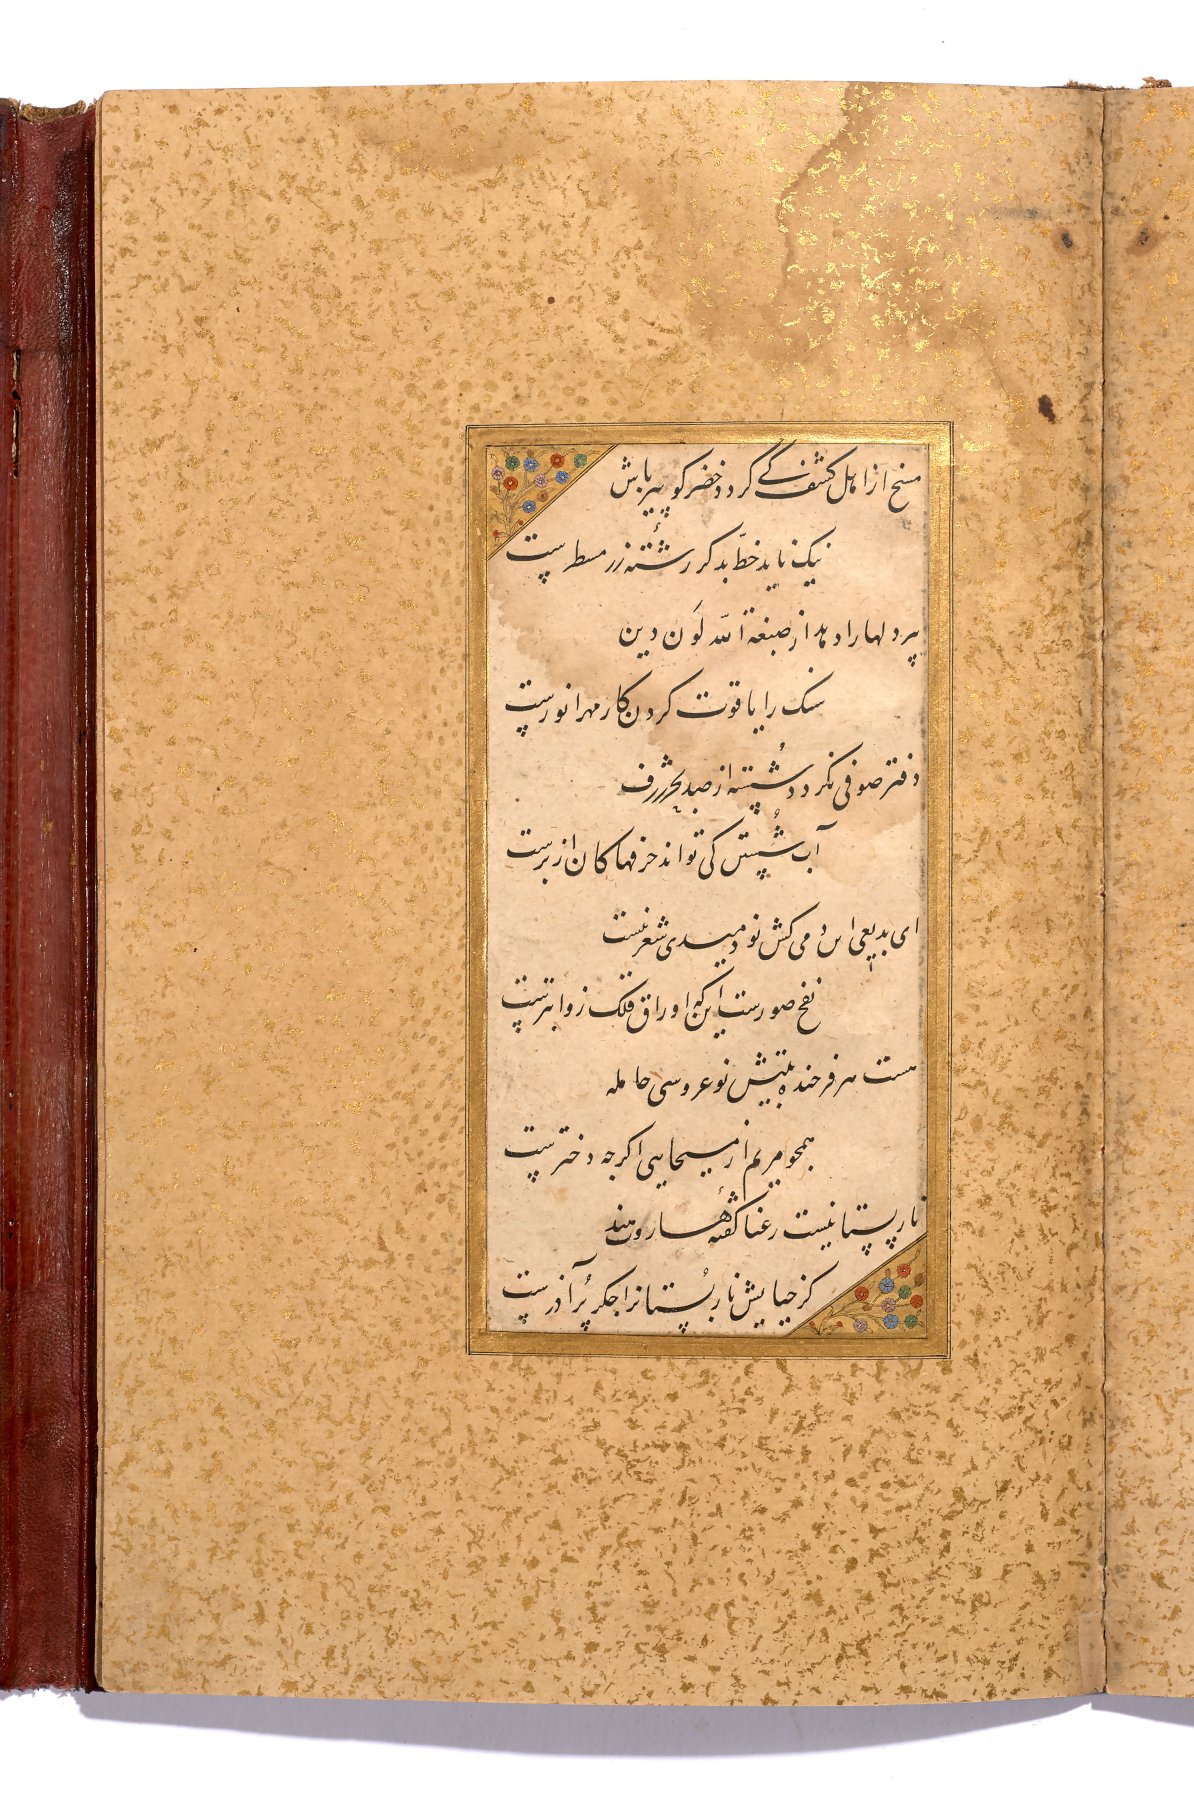 مسخ از اهل کشف کی گردد خضر کو پیر باش
نیک ناید خط بد کر رشته زر مسطر ست
پیر دلها را دهد از صبغة الله لون دین
سنک را یاقوت کردن کار مهر انور ست
دفتر صوفی نکردد شسته از صد بحر ژرف
آب شستن کی تواند حرفها کان از بر ست
ای بدیعی این دمی کش نو دمیدی شعر نیست
نفخ صور ست این که اوراق فلک زو ابتر ست
هست هر فرخنده بیتش نو عروسی حامله
همچو مریم از مسیحایی اکرچه دختر ست
نار پستانیست رعنا کفته هار و مند
کز حیایش نار پستانرا جکر پر آذر ست